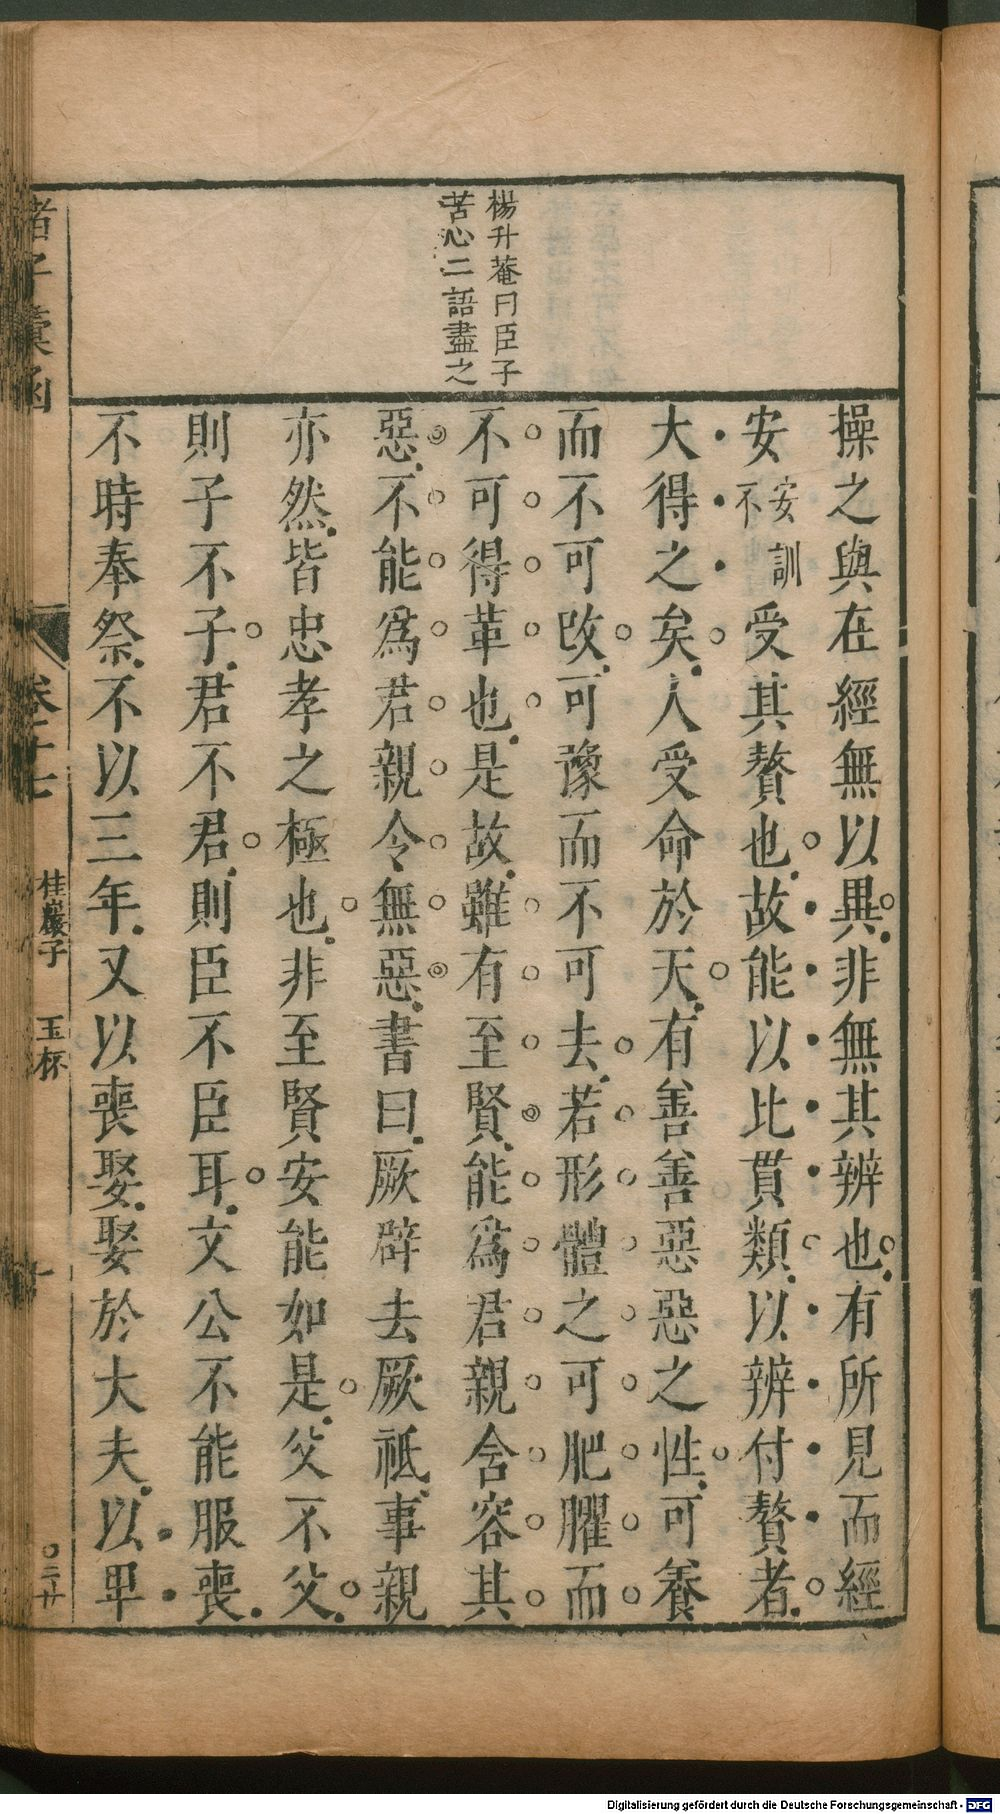 楊升菴曰臣子
苦心二語盡之
操之與在經無以異非無其辨也有所見而經
安安訓不受其贅也故能以比貫類以辨付贅者
大得之矣人受命於天有善善惡惡之性可養
而不可改可豫而不可去若形體之可肥臞而
不可得革也是故雖有至賢能為君親含容其
惡不能為君親令無惡書曰厥辟去厥祗事親
亦然皆忠孝之極也非至賢安能如是父不父
則子不子君不君則臣不臣耳文公不能服喪
不時奉祭不以三年又以喪娶娶於大夫以卑
諸子彙函
卷十七
桂巖子
玉杯
Digitalisierung gefördert durch die Deutsche Forschungsgemeinschaft - DFG